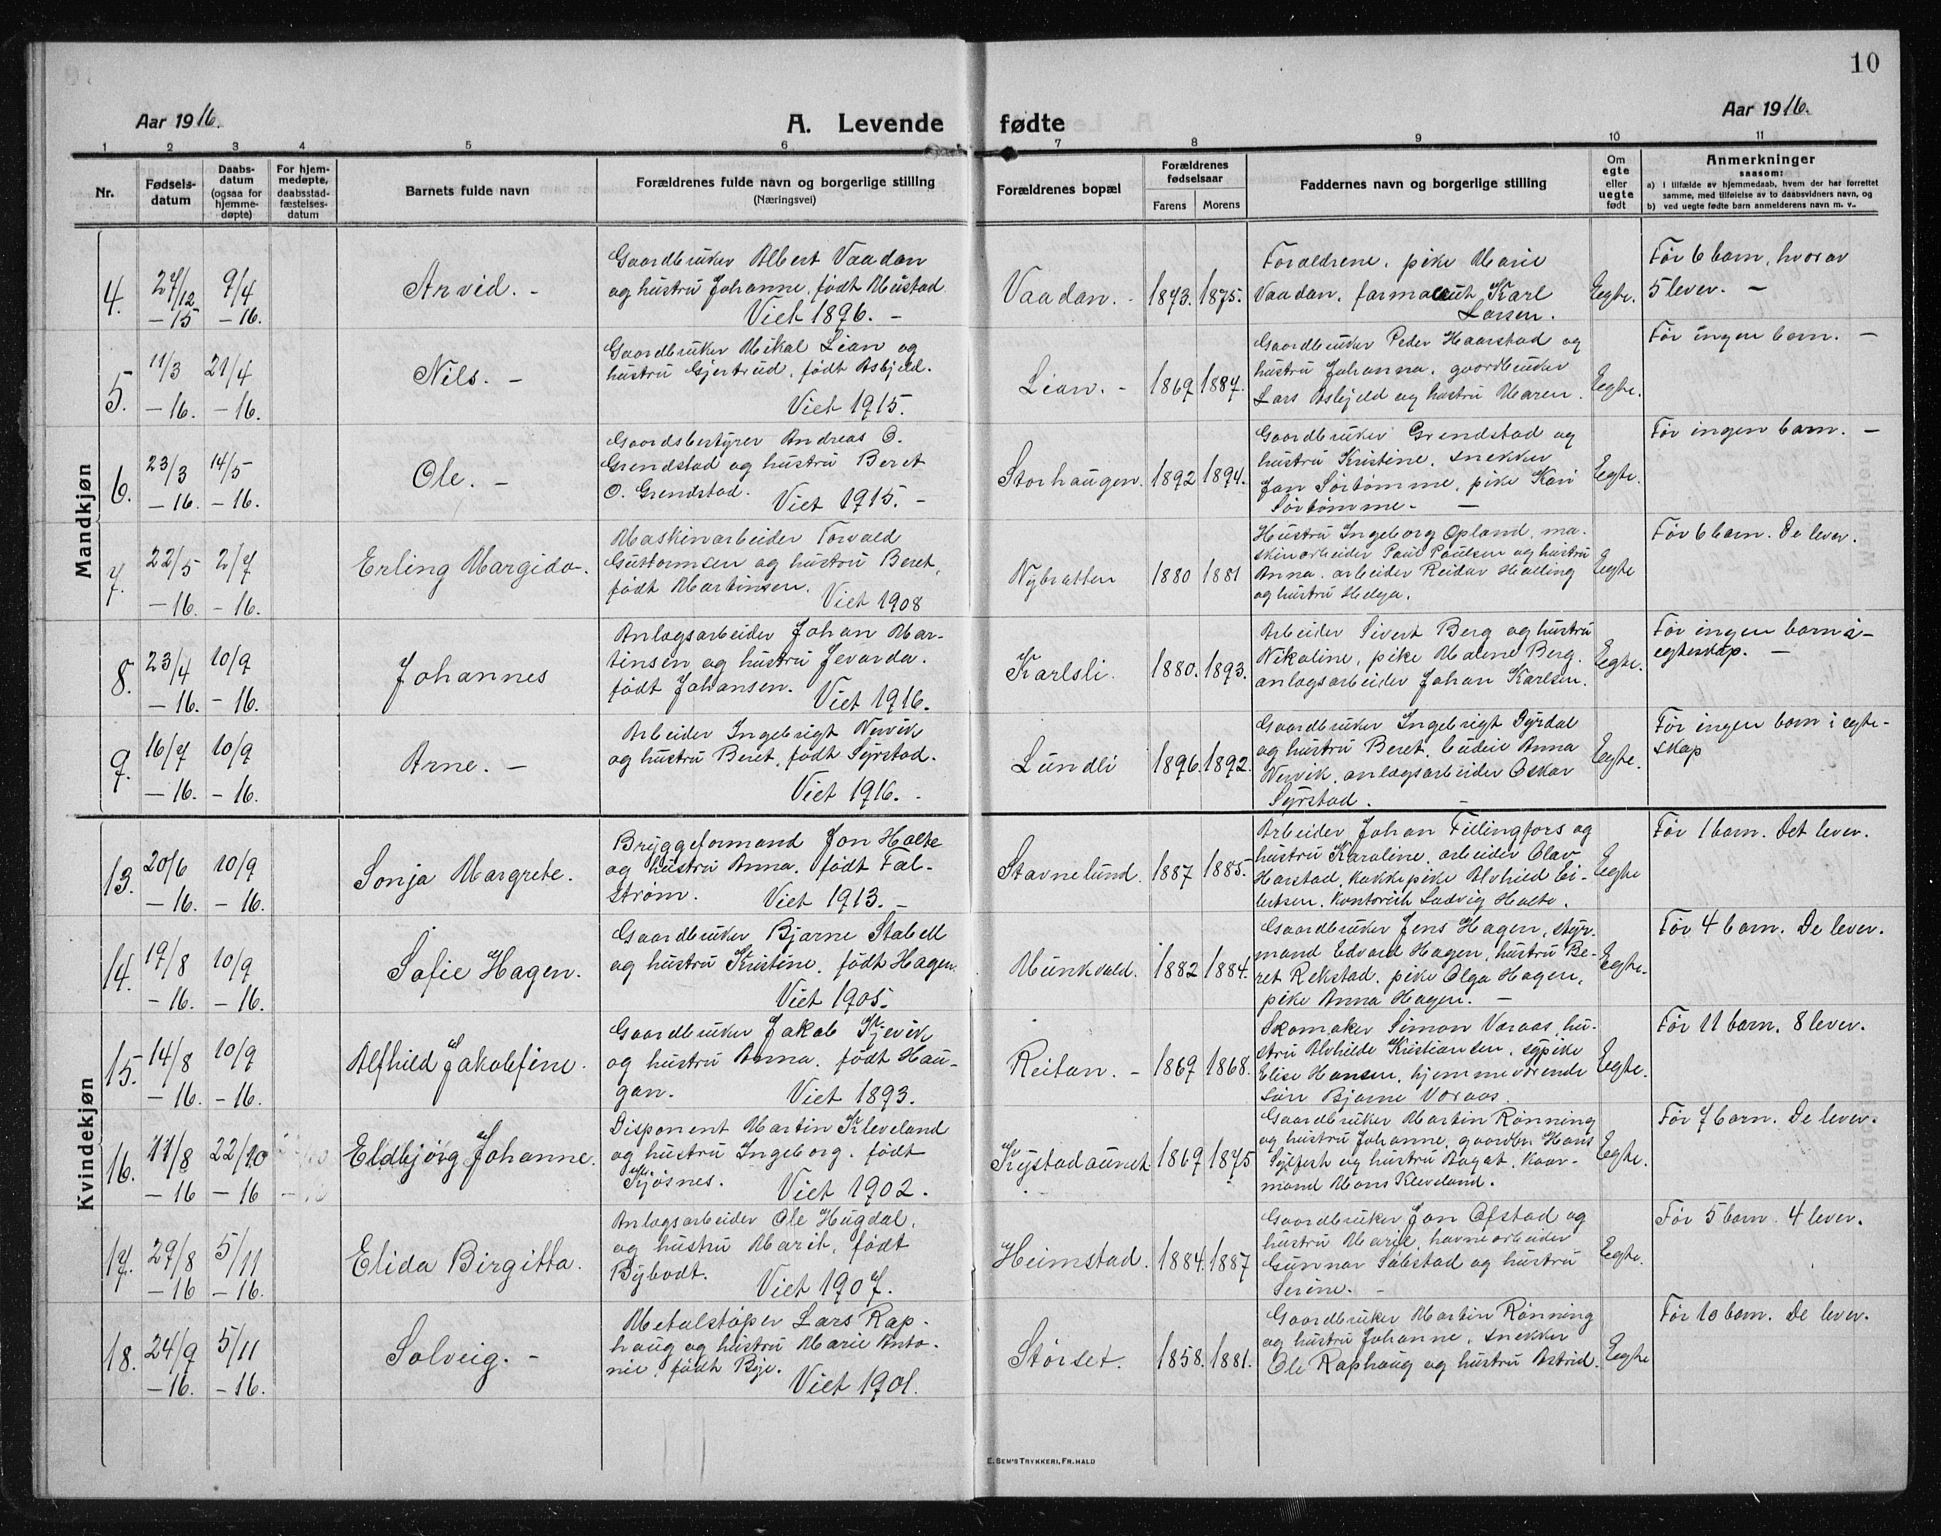 10
Aar 1916.
A. Levende fødte
Aar 1916.
1 2 3 4 5 6 7 8 9 10 11
Nr.
Fødsels-
datum
Daabs-
datum
(ogsaa for
hjemme-
døpte)
For hjem-
medøpte,
daabsstad-
fæstelses-
datum
Barnets fulde navn
Forældrenes fulde navn og borgerlige stilling
(Næringsvei)
Forældrenes bopæl
Forældrenes
fødselsaar
Farens Morens
Faddernes navn og borgerlige stilling
Om
egte
eller
uegte
født
Anmerkninger
saasom:
a) i tilfælde av hjemmedaab, hvem der har forrettet
samme, med tilføielse av to daabsvidners navn, og
b) ved uegte fødte barn anmelderens navn m. v..
Mandkjøn
4.
27/12
-15
9/4
-16.
Arvid. -
Gaardbruker Albert Vaadan
og hustru Johanne, født Mustad
Viet 1896. -
Vaadan. -
1873. 1875.
Forældrene, pike Marie
Vaadan, farmaceut Karl
Larsen.
Egte.
Før 6 barn, hvorav
5 lever. -
5.
11/3
-16.
24/4
-16.
Nils. -
Gaardbruker Mikal Lian og
hustru Gjertrud, født Asbjeld.
Viet 1915.
Lian. -
1867 1887.
Gaardbruker Peder Haarstad og
hustru Johanna, gaardbruker
Lars Asbjeld og hustru Maren.
Egte.
Før ingen barn. -
6.
23/3
-16.
14/5
-16.
Ole. -
Gaardsbestyrer Andreas O.
Grendstad og hustru Beret
O. Grendstad.
Viet 1915. -
Storhaugen.
1892 1894.
Gaardbruker Grendstad og
hustru Kristine, snekker
Jon Sørtømme, pike Kari
Sørtømme. -
Egte.
Før ingen barn. -
7.
22/5
-16.
2/7
-16.
Erling Margido.
Maskinarbeider Torvald
Guttormsen og hustru Beret,
født Martinsen.
Viet 1908
Nybratten
1880 1881
Hustru Ingeborg Opland, ma-
skinarbeider Paul Paulsen og hustru
Anna, arbeider Reidar Halling
og hustru Helga.
Egte
Før 6 barn. De lever.
8.
23/4
-16.
10/9
-16.
Johannes
Anlægsarbeider Johan Mar-
tinsen og hustru Jevarda,
født Johansen.
Viet 1916.
Karlsli.
1880. 1893.
Arbeider Sivert Berg og hustru
Nikoline, pike Malene Berg.
anlægsarbeider Johan Karlsen.
Egte.
Før ingen barn i
egteskap. -
9.
16/7
-16.
10/9
-16.
Arne. -
Arbeider Ingebrigt Nervik
og hustru Beret, født Syrstad.
Viet 1916. -
Lundli
1896. 1892.
Gaardbruker Ingebrigt Dyrdal
og hustru Beret, Anna
Nervik, anlægsarbeider Oskar
Syrstad. -
Egte.
Før ingen barn i egte-
skap
Kvindekjøn
13.
20/6
-16.
10/9
-16.
Sonja Margrete.
Bryggeformand Jon Holte
og hustru Anna, født Fal-
strøm.
Viet 1913. -
Stavnelund.
1887 1885.
Arbeider Johan Fillingfors og
hustru Karoline, arbeider Olav
Harstad, kokkepike Alvhild Ei-
lertsen, kontorist Ludvig Holte.
Egte
Før 1 barn. Det lever.
14.
17/8
-16.
10/9
-16.
Sofie Hagen.
Gaardbruker Bjarne Stabell
og hustru Kristine, født Hagen
Viet 1905.
Munkvold.
1882 1884.
Gaardbruker Jens Hagen, styr-
mand Edvard Hagen, hustru Be-
ret Rekstad, pike Olga Hagen,
pike Anna Hagen. -
Egte.
Før 4 barn. De lever.
15.
14/8
-16.
10/9
-16.
Alfhild Jakobfine.
Gaardbruker Jakob Kjevik
og hustru Anna, født Hau-
gan.
Viet 1893.
Reitan. -
1867 1868.
Skomaker Simon Voraas, hu-
stru Alvhilde Kristiansen, sypike
Elise Hansen, hjemmeværende
søn Bjarne Voraas.
Egte.
Før 11 barn. 8 lever.
16.
11/8
-16
22/10
-16
Eldbjørg Johanne.
Disponent Martin Kleveland
og hustru Ingeborg, født
Kjøsnes.
Viet 1902.
Krystadaunet
1867 1875
Gaardbruker Martin Rønning
og hustru Johanne, gaardbr. Hans
Sylfesh og hustru Bagat, kaar-
mand Mons Kleveland.
Egte.
Før 7 barn. De lever.
17.
27/8
-16
5/11
-16.
Elida Birgitta.
Anlægsarbeider Ole Hugdal,
og hustru Marit, født
Bybodt.
Viet 1907.
Heimstad.
1884. 1887
Gaardbruker Jon Ofstad og
hustru Marie, havnearbeider
Gunnar Solstad og hustru
Serine. -
Egte.
Før 5 barn. 4 lever.
18.
24/9
-16.
5/11
-16.
Solveig. -
Metalstøper Lars Rap-
haug og hustru Marie Anto-
nie, født Bye.
Viet 1901.
Størset.
1858. 1881.
Gaardbruker Martin Rønning
og hustru Johanne, snekker
Ole Raphaug og hustru Astrid.
Egte
Før 10 barn. De lever.
E. SEM'S TRYKKERI, FR. HALD